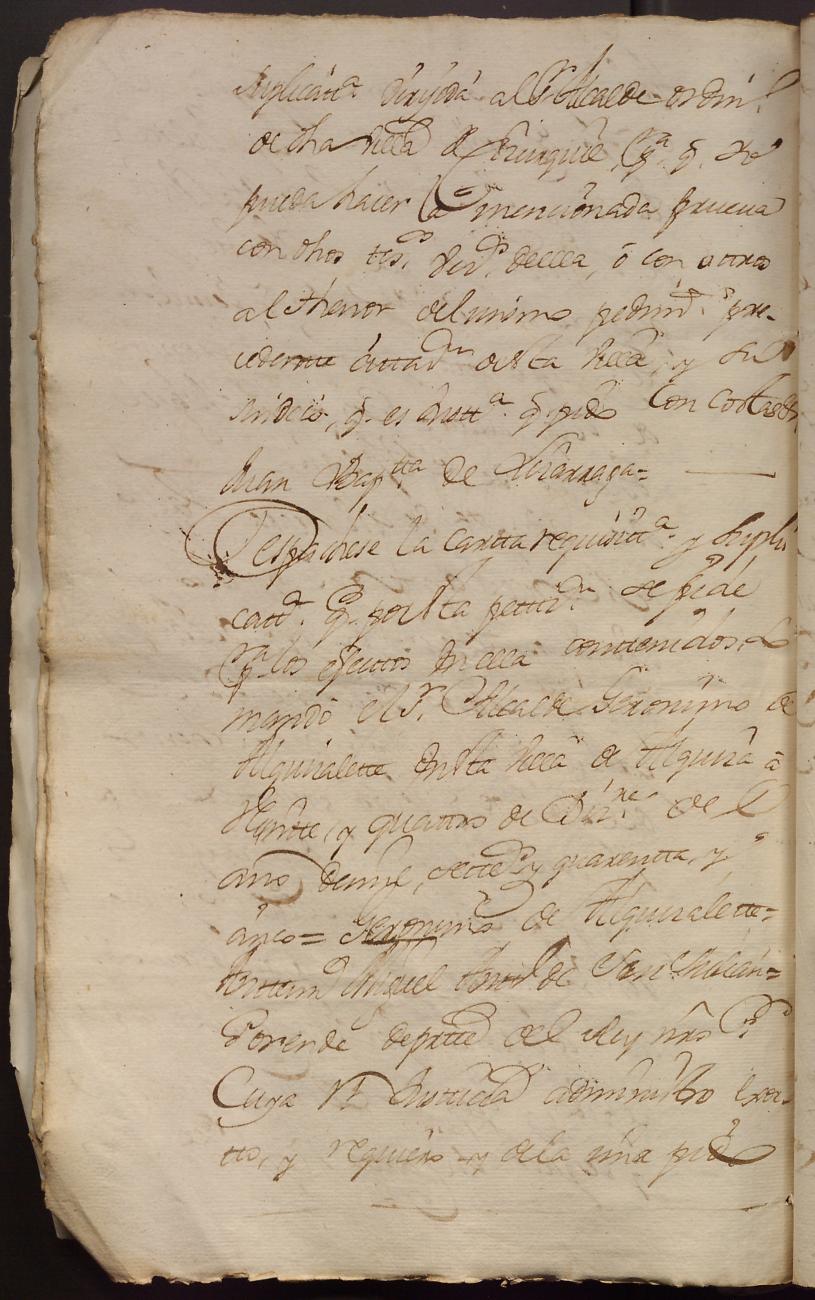 suplicatt.ª dirijida al S.r Alcalde ordin.º
de dha villa de p.ª q. se
pueda hacer la mencionada prueua
con dhos tts.os vez.os de ella, ó con ottros
al thenor del mismo pedim.to pre-
cedente cittaz.n de esta villa, y su
sindico, q. es justt.ª q. pido con costas ett.
Juan Bap.tta de Lizarraga=
Despachese la cartta requisitt.ª y supli
catt.ª q. por esta petiz.n se pide
p.ª los efectos en ella conttenidos, lo
mandó el S.r Alcalde Geronimo de
Alguiralette en esta villa de á
Veynte, y quattro de Diz.re de el
año de mil settez.os y quarentta, y
zinco= Geronimo de Alguiralette=
Antem.i Miguel Ant.º de San Julian=
Por ende de partte del Rey nro S.r
Cuya R.l Justicia administro exor-
tto, y requiero y de la mia pido